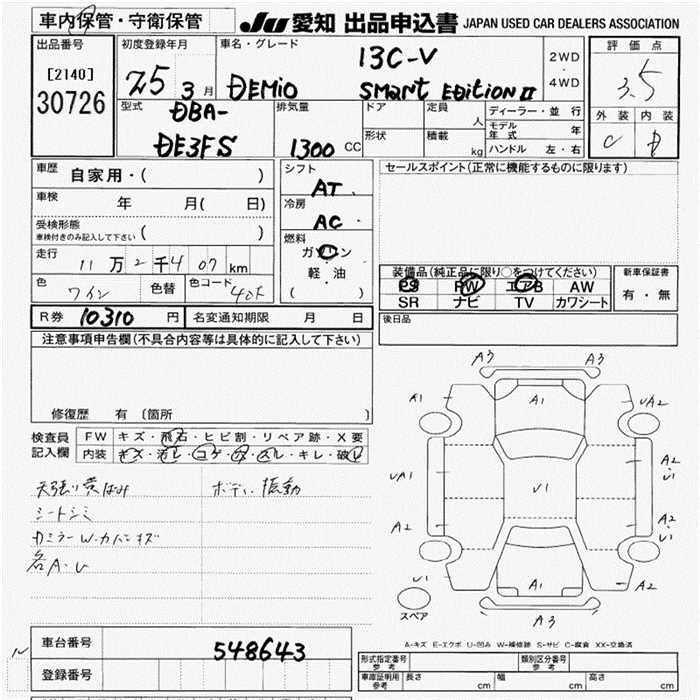 車内保管・守衛保管
JU 愛知 出品申込書 JAPAN USED CAR DEALERS ASSOCIATION
出品番号
[2140]
30726
初度登録年月
25 3 月
車名・グレード
DEMIO
13C-V
SMart EDitiON II
2WD
・
4WD
評価点
3.5
外装 内装
C D
型式
DBA-
DE3FS
排気量
1300 CC
ドア
形状
定員
人
積載
kg
ディーラー・並行
モデル年式 年
ハンドル 左・右
車歴
自家用・( )
車検
年 月( 日)
受検形態
車検付きのみ記入して下さい ( )
走行
11 万 2 千 4 07 km
色
ワイン
色替
色コード
シフト
AT
冷房
AC
燃料
ガソリン
軽・油
( )
セールスポイント(正常に機能するものに限ります)
装備品(純正品に限り○をつけてください)
PS PW エアB AW
SR ナビ TV カワシート
新車保証書
有・無
R券 10310 円
名変通知期限 月 日
後日品
注意事項申告欄(不具合内容等は具体的に記入して下さい)
修復歴 有 (箇所 )
検査員
記入欄
FW キズ・飛石・ヒビ割・リペア跡・X要
内装 キズ・汚レ・コゲ・穴・スレ・キレ・破レ
天張り黄ばみ
ボディ振動
シートシミ
Dミラー W・カバーキズ
各A・U
A3 A3
A1 A1 UA2
UA1 U1 A2
U1
A2 A2
U1
U1 A1 A2
A3
スペア
A-キズ E-エクボ U-凹み W-補修跡 S-サビ C-腐食 XX-交換済
車台番号
548643
登録番号
形式指定番号
参考
類別区分番号
参考
車庫証明用
参考
長さ cm
幅 cm
高さ cm